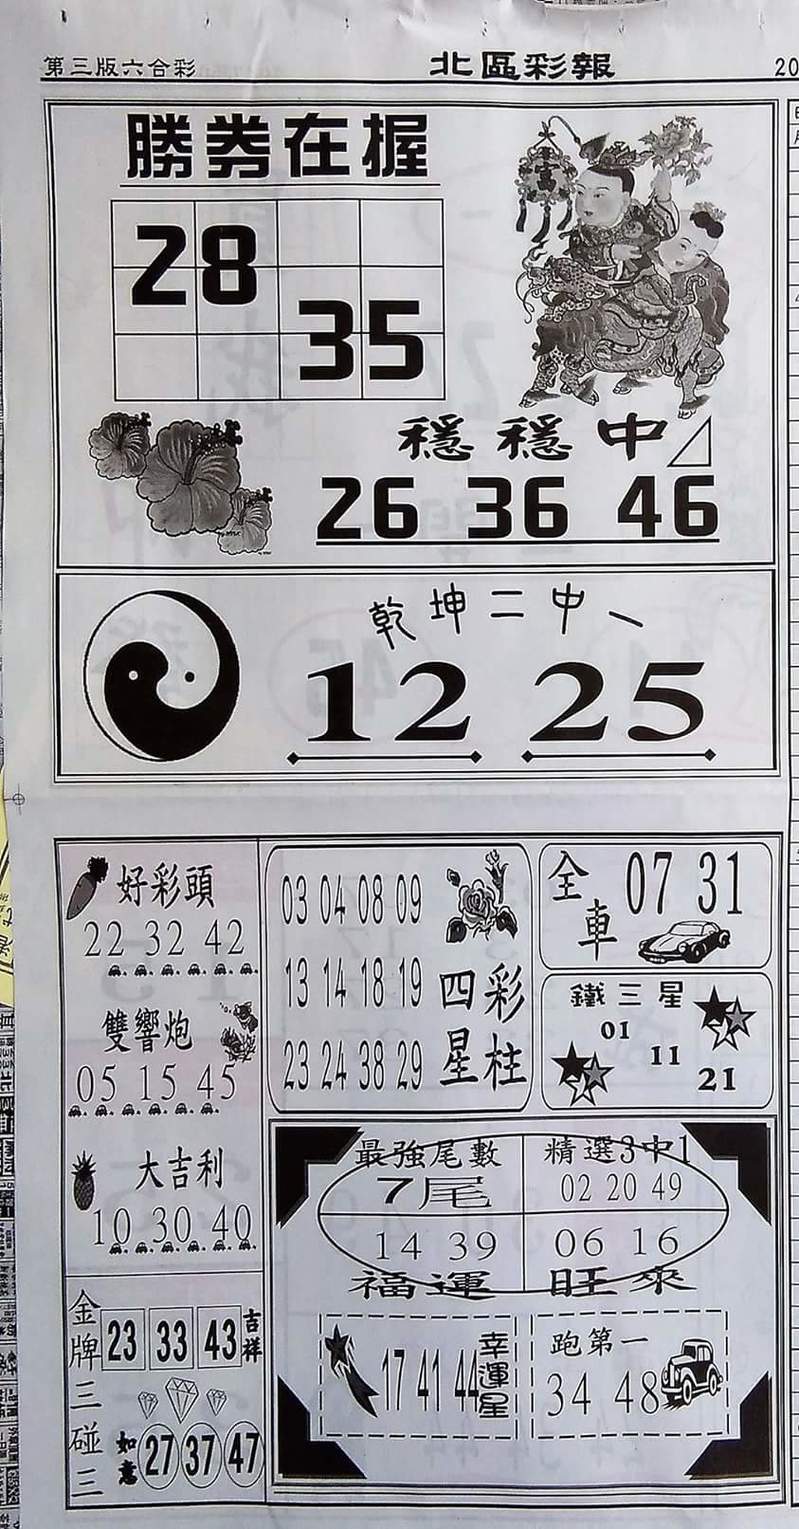 第三版六合彩 北區彩報 20
勝券在握
28
35
富
穩穩中
26 36 46
乾坤二中一
12 25
好彩頭
22 32 42
雙響炮
05 15 45
大吉利
10 30 40
金牌三碰三
23 33 43 吉祥
如意 27 37 47
03 04 08 09
13 14 18 19
23 24 38 29
四星彩柱
全車 07 31
鐵三星
01
11
21
最強尾數
7尾
精選3中1
02 20 49
14 39
福運
06 16
旺來
17 41 44 幸運星
跑第一
34 48